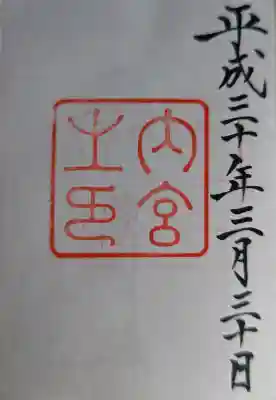 平成三十年三月三十日
内宮
之印